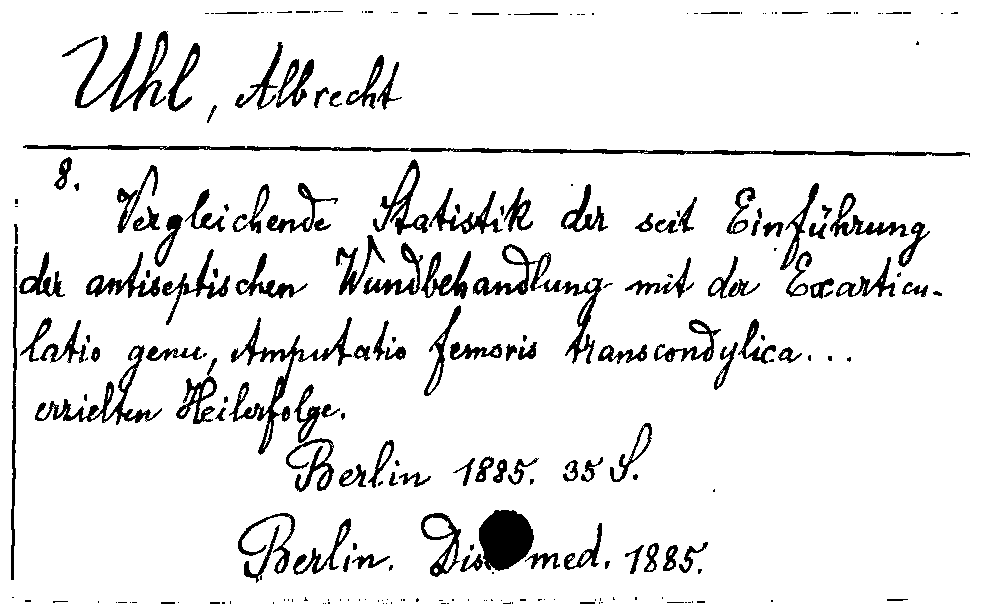 Uhl, Albrecht
8.
Vergleichende Statistik der seit Einführung
der antiseptischen Wundbehandlung mit der Exarticu-
latio genu, Amputatio femoris transcondylica...
erzielten Heilerfolge.
Berlin 1885. 35 S.
Berlin. Dis med. 1885.